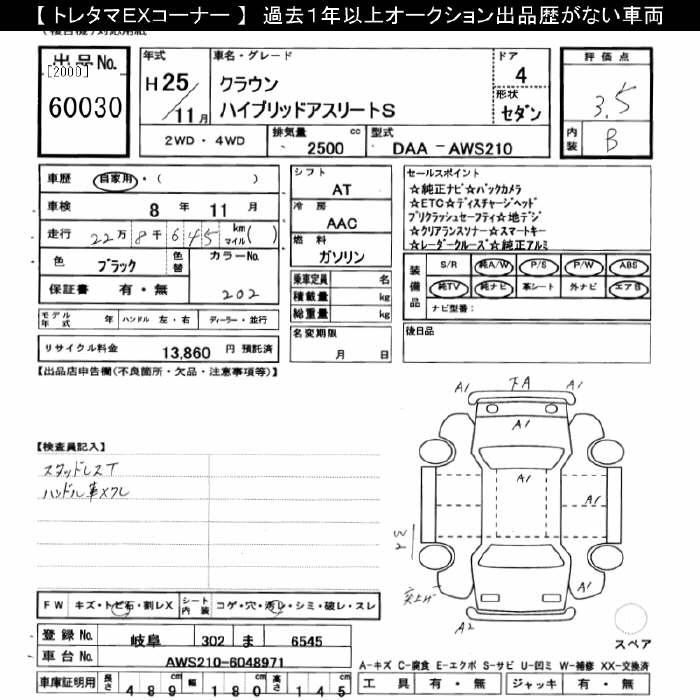 【 トレタマEXコーナー 】 過去1年以上オークション出品歴がない車両
出品No.
[2000]
60030
年式
H25/11月
車名・グレード
クラウン
ハイブリッドアスリートS
ドア
4
形状
セダン
評価点
3.5
内装
B
2WD・4WD
排気量 2500 cc
型式 DAA-AWS210
車歴 自家用・( )
車検 8年 11月
走行 22万8千645 km マイル( )
色 ブラック 色替 カラーNo. 202
保証書 有・無
モデル年式 年 ハンドル 左・右 ディーラー・並行
リサイクル料金 13,860 円 預託済
シフト
AT
冷房
AAC
燃料
ガソリン
乗車定員 名
積載量 kg
総重量 kg
名変期限
月 日
セールスポイント
☆純正ナビ☆バックカメラ
☆ETC☆ディスチャージヘッド
プリクラッシュセーフティ☆地デジ
☆クリアランスソナー☆スマートキー
☆レーダークルーズ☆純正アルミ
装備品
S/R 純A/W P/S P/W ABS
純TV 純ナビ 革シート 外ナビ エアB
ナビ型番：
後日品
【出品店申告欄(不良箇所・欠品・注意事項等)】
【検査員記入】
スタッドレスT
ハンドル革スレ
A1 FA A1
A1
A1
A1
W2
A1
A2
スペア
FW キズ・トビ石・割レX シート内装 コゲ・穴・汚レ・シミ・破レ・スレ
登録No. 岐阜 302 ま 6545
車台No. AWS210-6048971
車庫証明用 長さ 489cm 幅 180cm 高さ 145cm
A-キズ C-腐食 E-エクボ S-サビ U-凹ミ W-補修 XX-交換済
工具 有・無 ジャッキ 有・無